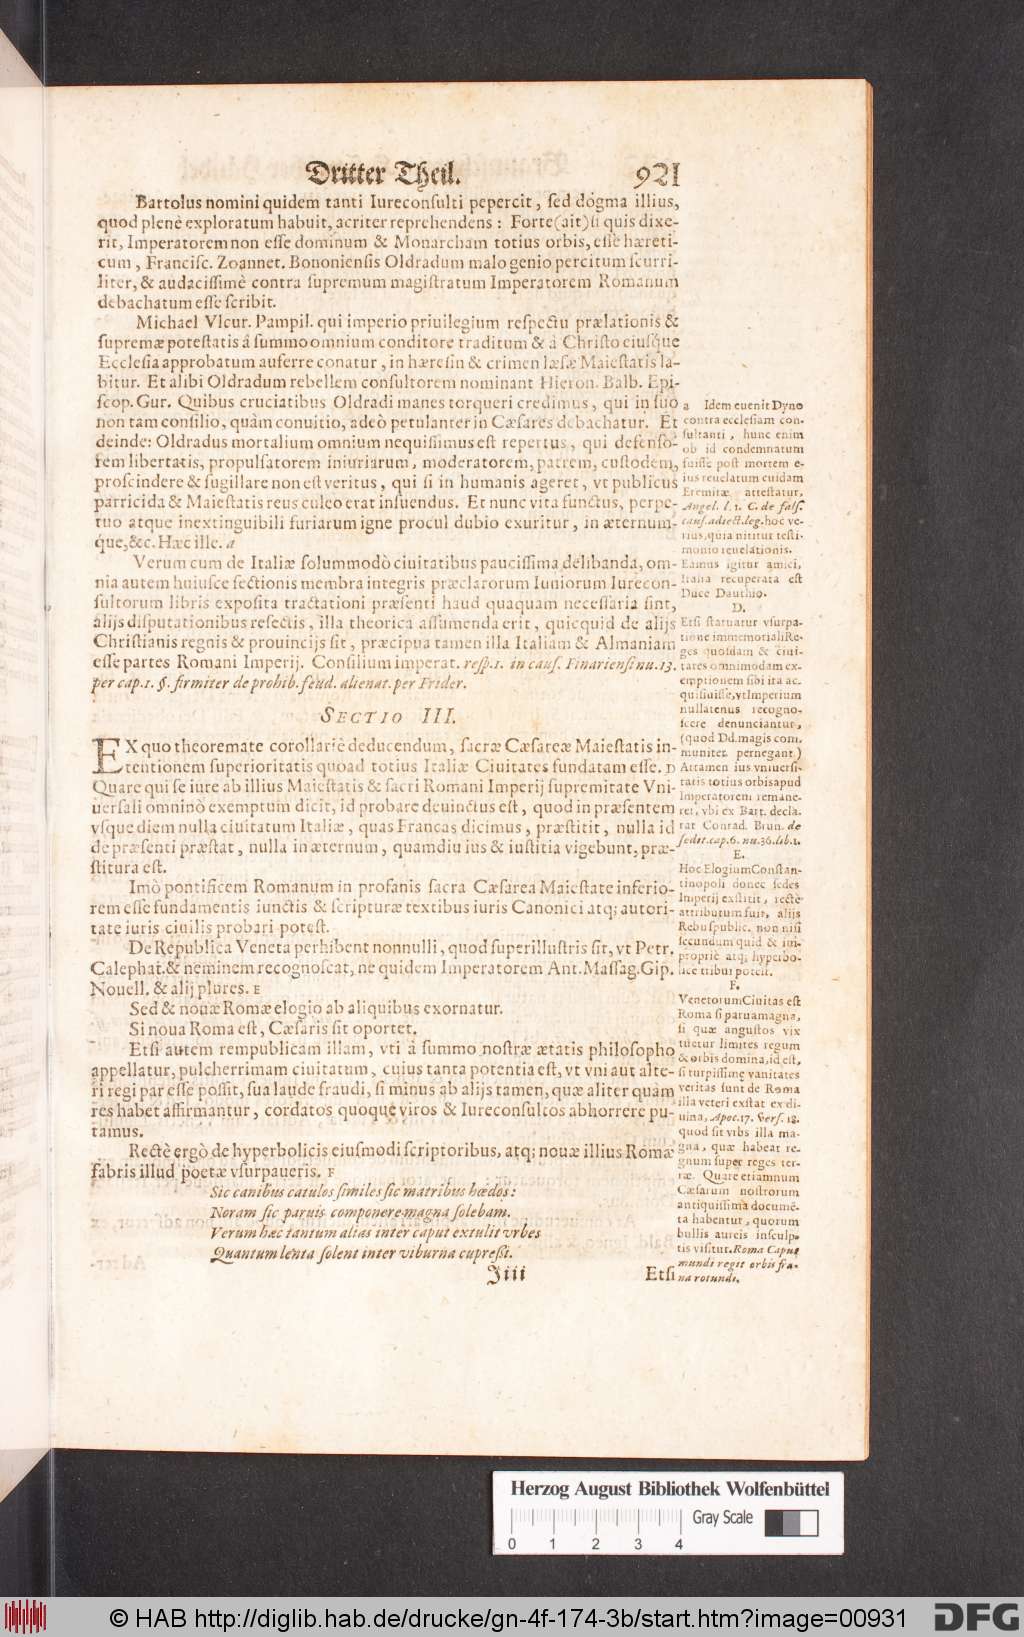 Dritter Theil. 921
Bartolus nomini quidem tanti Iureconsulti pepercit, sed dogma illius,
quod plenè exploratum habuit, acriter reprehendens : Forte (ait) si quis dixe-
rit, Imperatorem non esse dominum & Monarcham totius orbis, esse hæreti-
cum, Francisc. Zoannet. Bononiensis Oldradum malo genio percitum scurri-
liter, & audacissimè contra supremum magistratum Imperatorem Romanum
debachatum esse scribit.
Michael Vlcur. Pampil. qui imperio priuilegium respectu prælationis &
supremæ potestatis â summo omnium conditore traditum & à Christo eiusque
Ecclesia approbatum auferre conatur, in hæresin & crimen læsæ Maiestatis la-
bitur. Et alibi Oldradum rebellem consultorem nominant Hieron. Balb. Epi-
scop. Gur. Quibus cruciatibus Oldradi manes torqueri credimus, qui in suo
non tam consilio, quàm conuitio, adeò petulanter in Cæsares debachatur. Et
deinde: Oldradus mortalium omnium nequissimus est repertus, qui defenso-
rem libertatis, propulsatorem iniuriarum, moderatorem, patrem, custodem,
proscindere & sugillare non est veritus, qui si in humanis ageret, vt publicus
parricida & Maiestatis reus culeo erat insuendus. Et nunc vita functus, perpe-
tuo atque inextinguibili furiarum igne procul dubio exuritur, in æternum-
que, &c. Hæc ille. a
Verum cum de Italiæ solummodò ciuitatibus paucissima delibanda, om-
nia autem huiusce sectionis membra integris præclarorum Iuniorum Iurecon-
sultorum libris exposita tractationi præsenti haud quaquam necessaria sint,
alijs disputationibus resectis, illa theorica assumenda erit, quicquid de alijs
Christianis regnis & prouincijs sit, præcipua tamen illa Italiam & Almaniam
esse partes Romani Imperij. Consilium imperat. resp. 1. in caus. Finariensi nu. 13.
per cap. 1. §. firmiter de prohib. feud. alienat. per Frider.
SECTIO III.
EX quo theoremate corollariè deducendum, sacræ Cæsareæ Maiestatis in-
tentionem superioritatis quoad totius Italiæ Ciuitates fundatam esse. D
Quare qui se iure ab illius Maiestatis & sacri Romani Imperij supremitate Vni-
uersali omninò exemptum dicit, id probare deuinctus est, quod in præsentem
vsque diem nulla ciuitatum Italiæ, quas Francas dicimus, præstitit, nulla id
de præsenti præstat, nulla in æternum, quamdiu ius & iustitia vigebunt, præ-
stitura est.
Imò pontificem Romanum in profanis sacra Cæsarea Maiestate inferio-
rem esse fundamentis iunctis & scripturæ textibus iuris Canonici atq; autori-
tate iuris ciuilis probari potest.
De Republica Veneta perhibent nonnulli, quod superillustris sit, vt Petr.
Calephat. & neminem recognoscat, ne quidem Imperatorem Ant. Massag. Gip.
Nouell. & alij plures. E
Sed & nouæ Romæ elogio ab aliquibus exornatur.
Si noua Roma est, Cæsaris sit oportet.
Etsi autem rempublicam illam, vti à summo nostræ ætatis philosopho
appellatur, pulcherrimam ciuitatum, cuius tanta potentia est, vt vni aut alte-
ri regi par esse possit, sua laude fraudi, si minus ab alijs tamen, quæ aliter quàm
res habet affirmantur, cordatos quoque viros & Iureconsultos abhorrere pu-
tamus.
Rectè ergò de hyperbolicis eiusmodi scriptoribus, atq; nouæ illius Romæ
fabris illud poetæ vsurpaueris. F
Sic canibus catulos similes sic matribus hœdos:
Noram sic paruis componere magna solebam.
Verum hæc tantum alias inter caput extulit vrbes
Quantum lenta solent inter viburna cupressi.
Jiii Etsi
a Idem euenit Dyno
contra ecclesiam con-
sultanti, hunc enim
ob id condemnatum
fuisse post mortem e-
ius reuelatum cuidam
Eremitæ attestatur,
Angel. l. 1. C. de fals.
caus. adiect. leg. hoc ve-
rius, quia nititur testi-
monio reuelationis.
Eamus igitur amici,
Italia recuperata est
Duce Dauthio.
D.
Etsi statuatur vsurpa-
tione immemoriali Re-
ges quosdam & ciui-
tates omnimodam ex-
emptionem sibi ita ac-
quisiuisse, vt Imperium
nullatenus recogno-
scere denuncientur,
(quod Dd. magis com-
muniter pernegant)
Attamen ius vniuersi-
tatis totius orbis apud
Imperatorem remane-
ret, vbi ex Bart. decla-
rat Conrad. Brun. de
sedit. cap. 6. nu. 36. lib. 1.
E.
Hoc Elogium Constan-
tinopoli donec sedes
Imperij exstitit, rectè
attributum fuit, alijs
Rebuspublic. non nisi
secundum quid & im-
propriè atq; hyperbo-
lice tribui poterit.
F.
Venetorum Ciuitas est
Roma si parua magna,
si quæ angustos vix
tuetur limites regum
& orbis domina, id est,
si turpissimę vanitates
veritas sunt de Roma
illa veteri exstat ex di-
uina, Apoc. 17. vers. 18.
quod sit vrbs illa ma-
gna, quæ habeat re-
gnum super reges ter-
ræ. Quare etiamnum
Cæsarum nostrorum
antiquissima documē-
ta habentur, quorum
bullis aureis insculp-
tis visitur. Roma Caput
mundi regit orbis fræ-
na rotundi.
Herzog August Bibliothek Wolfenbüttel
Gray Scale
0 1 2 3 4
© HAB http://diglib.hab.de/drucke/gn-4f-174-3b/start.htm?image=00931
DFG